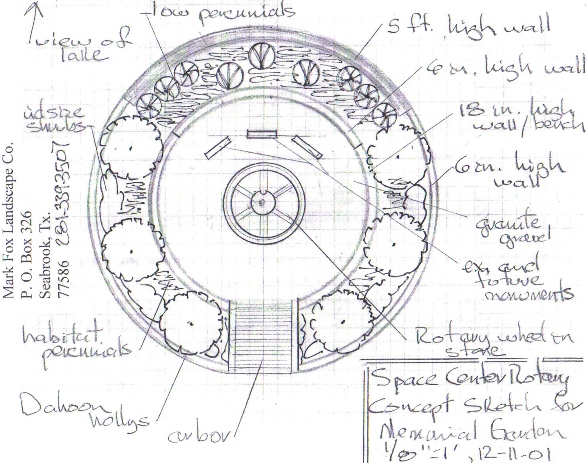 low perennials
view of
lake
5 ft. high wall
6 in. high wall
18 in. high
wall/bench
6 in. high
wall
granite
gravel
ex. and
future
monuments
Rotary wheel in
stone
midsize
shrubs
habitat
perennials
Dahoon
hollys
arbor
Mark Fox Landscape Co.
P. O. Box 326
Seabrook, Tx.
77586 281-339-3507
Space Center Rotary
Concept Sketch for
Memorial Garden
1/8"=1', 12-11-01